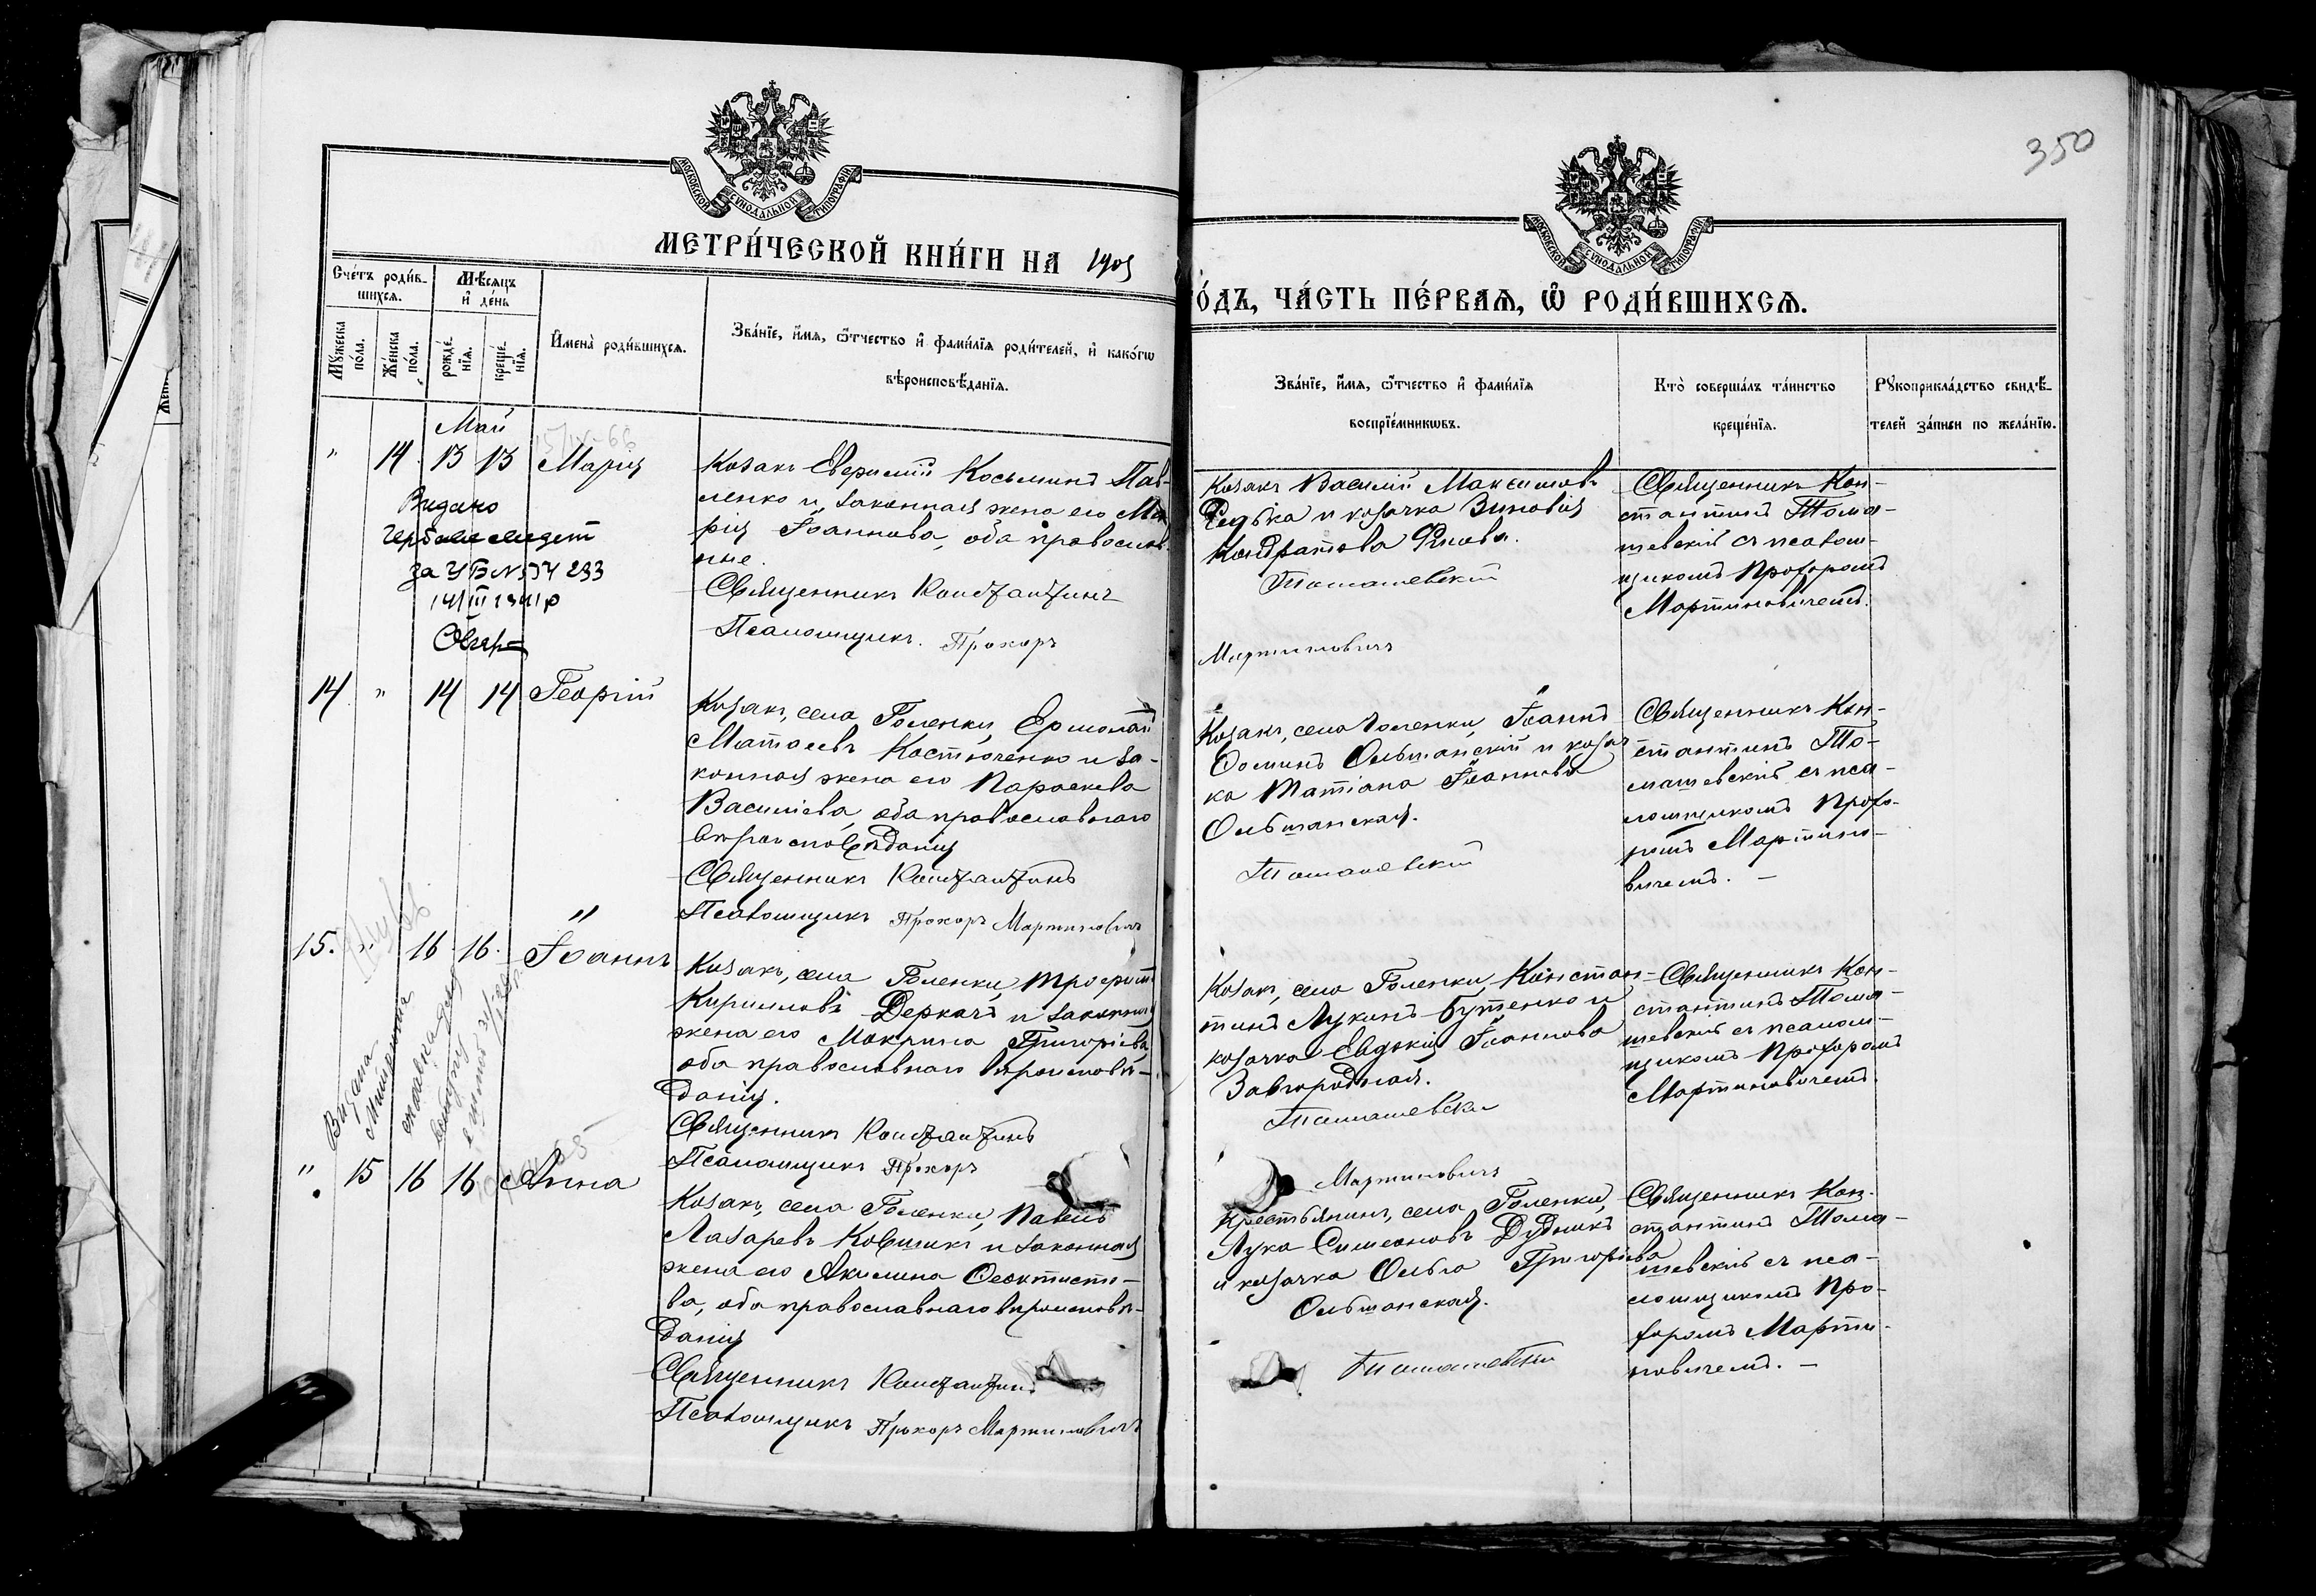 350
МОСКОВСКОЙ СѴНОДАЛЬНОЙ ТИПОГРАФІИ
МОСКОВСКОЙ СѴНОДАЛЬНОЙ ТИПОГРАФІИ
МЕТРИ́ЧЕСКОЙ КНИ́ГИ НА 1905
О́ДЪ, ЧА́СТЬ ПЕ́РВАЯ, Ѡ҆ РОДИ́ВШИХСЯ.
Сче́тъ роди́в-
шихся.
Мѣ́сяцъ
и҆ де́нь
Мꙋ́жеска
по́ла.
Же́нска
по́ла.
рожде́-
нїя.
креще́-
нїя.
И҆мена̀ роди́вшихся.
Зва́нїе, и҆́мя, ѻ҆́тчество и҆ фами́лїя роди́телей, и҆ како́гѡ
вѣроисповѣ́данїя.
Зва́нїе, и҆́мя, ѻ҆́тчество и҆ фами́лїя
воспрїе́мникѡвъ.
Кто̀ соверша́лъ та́инство
креще́нїя.
Рꙋкоприкла́дство свидѣ́-
телей за́писи по жела́нїю.
Май
" 14 13 13 Марія
Козакъ Евфимій Косьминъ Пав-
ленко и законная жена его Ма
рія Іоаннова, оба православ
ные.
Священникъ Константинъ
Псаломщикъ Прохоръ
Козакъ Василій Максимовъ
Редька и козачка Зиновія
Кондратова
Томашевскій
Мартиновичъ
Священникъ Кон-
стантинъ Тома-
шевскій съ псалом-
щикомъ Прохоромъ
Мартиновичемъ.
Видано
за УБ № 233
14/III 1941р
14 " 14 14 Георгій
Козакъ, села Голенки, Ермолай
Матѳеевъ Костюченко и за-
конная жена его Параскева
Василіева, оба православнаго
вѣроисповѣданія
Священникъ Константинъ
Псаломщикъ Прохоръ Мартиновичъ
Козакъ, села Голенки, Іоаннъ
Ѳоминъ Ольшанскій и козач
ка Татіана Іоаннова
Ольшанская.
Томашевскій
Священникъ Кон-
стантинъ То-
машевскій съ пса-
ломщикомъ Прохо-
ромъ Мартино-
вичемъ. —
15. " 16 16. Іоаннъ
Козакъ, села Голенки, Трофимъ
Кирилловъ Деркачъ и законная
жена его Макрина Григоріева
оба православнаго вѣроисповѣ-
данія.
Священникъ Константинъ
Псаломщикъ Прохоръ
Козакъ, села Голенки, Констан-
тинъ Лукинъ Бутенко и
козачка Евдокія Іоаннова
Завгородная.
Томашевскій
Мартиновичъ
Священникъ Кон-
стантинъ Тома-
шевскій съ псалом-
щикомъ Прохоромъ
Мартиновичемъ.
Видана
". 15 16 16 Анна
Козакъ, села Голенки, Павелъ
Лазаревъ Ковшикъ и законная
жена его Акилина Ѳеоктисто-
ва, оба православнаго вѣроисповѣ-
данія
Священникъ Константинъ
Псаломщикъ Прохоръ Мартиновичъ
Крестьянинъ, села Голенки,
Лука Симеоновъ Дудникъ
и козачка Ольга Григоріева
Ольшанская.
Томашевскій
Священникъ Кон-
стантинъ Тома-
шевскій съ пса-
ломщикомъ Про-
хоромъ Марти-
новичемъ. —